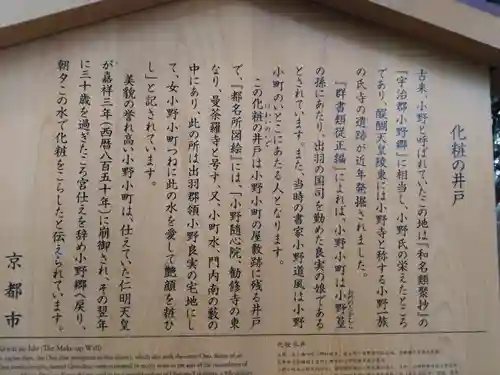 化粧の井戸
古来、小野と呼ばれていたこの地は『和名類聚抄』の
『宇治郡小野郷』に相当し、小野氏の栄えたところ
であり、醍醐天皇陵東には小野寺と称する小野一族
の氏寺の遺跡が近年発掘されました。
『群書類従正編』によれば、小野小町は小野篁
の孫にあたり、出羽の国司を勤めた良実の娘である
とされています。また、当時の書家小野道風は小野
小町のいとこにあたる人となります。
この化粧の井戸は小野小町の屋敷跡に残る井戸
で、『都名所図絵』には、「小野随心院、勧修寺の東
なり、曼荼羅寺と号す、又、小町水、門内南の藪の
中にあり、此の所は出羽郡領小野良実の宅地にし
て、女小野小町つねに此の水を愛して艶顔を粧ひ
し」と記されています。
美貌の誉れ高い小野小町は、仕えていた仁明天皇
が嘉祥三年(西暦八百五十年)に崩御され、その翌年
に三十歳を過ぎたころ宮仕えを辞め小野郷へ戻り、
朝夕この水で化粧をこらしたと伝えられています。
京都市
(The Make-up Well)